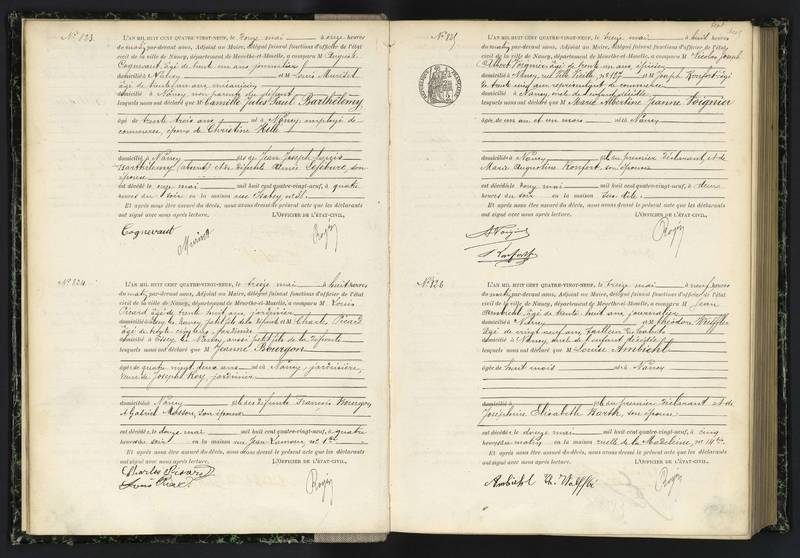 N° 823.
L'AN MIL HUIT CENT QUATRE-VINGT-NEUF, le douze mai à onze heures
du matin, par-devant nous, Adjoint au Maire, délégué faisant fonctions d'officier de l'état
civil de la ville de Nancy, département de Meurthe-et-Moselle, a comparu M Auguste
Cognevaut, âgé de trente un ans, journalier
domicilié à Nancy et M Louis
âgé de trente ans
domicilié à Nancy, non parents du défunt
lesquels nous ont déclaré que M Camille Jules Paul Barthélemy
âgé de trente trois ans né à Nancy, employé de
commerce, époux de Christine Hille
domicilié à Nancy Jean Joseph
Barthélemy (absent) et de défunte Aimée Lefebure, son
épouse
est décédé le onze mai mil huit cent quatre-vingt-neuf, à quatre
heures du soir en la maison rue
Et après nous être assuré du décès, nous avons dressé le présent acte que les déclarants
ont signé avec nous après lecture. L'OFFICIER DE L'ÉTAT-CIVIL,
Cognevaut
N° 824
L'AN MIL HUIT CENT QUATRE-VINGT-NEUF, le treize mai à huit heures
du matin, par-devant nous, Adjoint au Maire, délégué faisant fonctions d'officier de l'état
civil de la ville de Nancy, département de Meurthe-et-Moselle, a comparu M Louis
Picard, âgé de trente huit ans, jardinier
domicilié à Essey-les-Nancy, petit fils de la défunte et M Charles Picard
âgé de trente cinq ans, jardinier
domicilié à Essey-les-Nancy, aussi petit fils de la défunte
lesquels nous ont déclaré que M Jeanne Bourgon
âgée de quatre vingt deux ans née à Nancy, jardinière,
veuve de Joseph Roy, jardinier
domiciliée à Nancy et des défunts François Bourgon
& Gabriel Masson, son épouse
est décédée le douze mai mil huit cent quatre-vingt-neuf, à quatre
heures du soir en la maison rue Jean Lamour, n° 1
Et après nous être assuré du décès, nous avons dressé le présent acte que les déclarants
ont signé avec nous après lecture. L'OFFICIER DE L'ÉTAT-CIVIL,
Charles Picard
Louis Picard
N° 825
L'AN MIL HUIT CENT QUATRE-VINGT-NEUF, le treize mai à huit heures
du matin, par-devant nous, Adjoint au Maire, délégué faisant fonctions d'officier de l'état
civil de la ville de Nancy, département de Meurthe-et-Moselle, a comparu M Nicolas Joseph
Albert Voignier, âgé de trente un ans, épicier
domicilié à Nancy, rue Ville Vieille, n° 127 et M Joseph Konfort, âgé
de trente ans, représentant de commerce
domicilié à Nancy, oncle de l'enfant décédée
lesquels nous ont déclaré que M Marie Albertine Jeanne Voignier
âgée de un an et un mois née à Nancy
domiciliée à Nancy et du premier déclarant, et de
Marie Augustine Konfort, son épouse
est décédée le onze mai mil huit cent quatre-vingt-neuf, à deux
heures du soir en la maison sus dite.
Et après nous être assuré du décès, nous avons dressé le présent acte que les déclarants
ont signé avec nous après lecture. L'OFFICIER DE L'ÉTAT-CIVIL,
N° 826
L'AN MIL HUIT CENT QUATRE-VINGT-NEUF, le treize mai à neuf heures
du matin, par-devant nous, Adjoint au Maire, délégué faisant fonctions d'officier de l'état
civil de la ville de Nancy, département de Meurthe-et-Moselle, a comparu M Jean
Ambiehl, âgé de trente huit ans, journalier
domicilié à Nancy et M Théodore Wolffli
âgé de vingt neuf ans, tailleur d'habits
domicilié à Nancy, oncle de l'enfant décédée
lesquels nous ont déclaré que M Louise Ambiehl
âgée de huit mois née à Nancy
domiciliée à et du premier déclarant et de
Joséphine Elisabeth Barth, son épouse
est décédée le douze mai mil huit cent quatre-vingt-neuf, à cinq
heures du matin en la maison ruelle de la Madeleine, n° 14
Et après nous être assuré du décès, nous avons dressé le présent acte que les déclarants
ont signé avec nous après lecture. L'OFFICIER DE L'ÉTAT-CIVIL,
Ambiehl Th. Wolffli